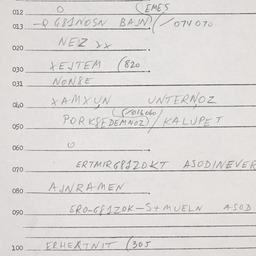 012 O (EMES
013 -R G81NOSN BAJN)/074070
020 NEZ XX
030 XEJTEM (820
031 NON8E
040 XAMXUN UNTERNOZ
050 PORKSE DEMNOZ)/KALUPET
060 O
070 ERTMIRG81ZOKT ASODINEVER
080 AJNRAMEN
090 ERO-G81ZOK-S+MUELN ASOD
100 ERHEATNIT (305